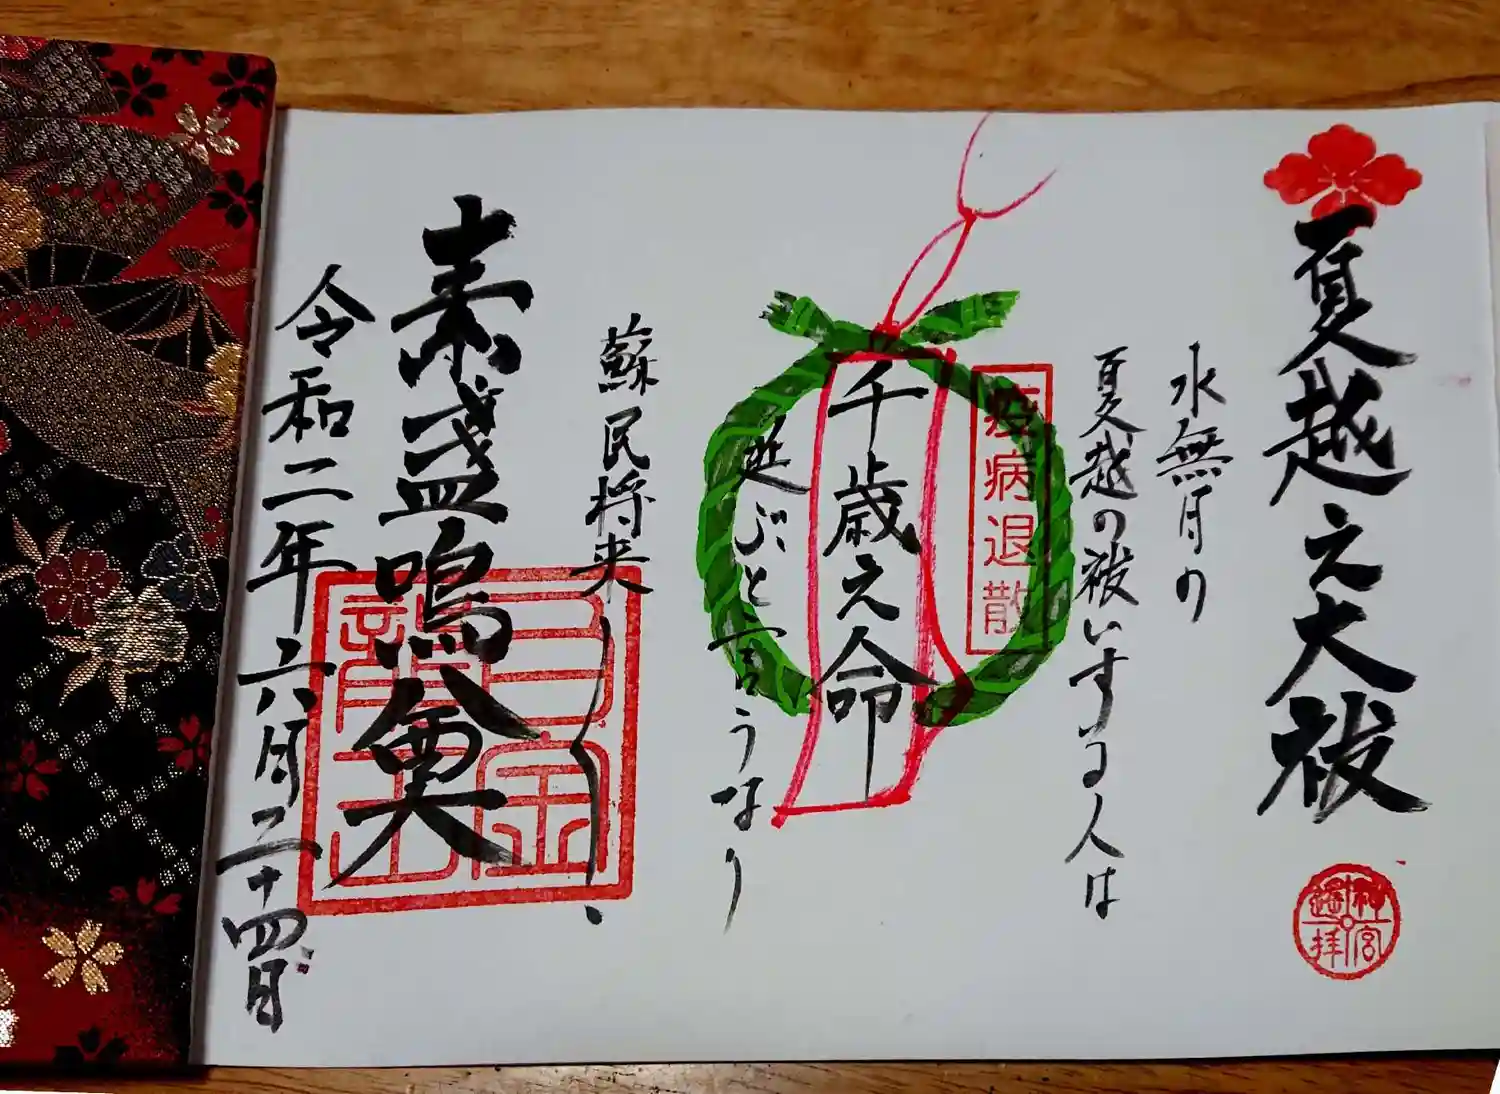 夏越之大祓
神宮遥拝
水無月の
夏越の祓いする人は
疫病退散
千歳之命
延ぶと言うなり
蘇民将来
素盞嗚尊
令和二年六月二十四日